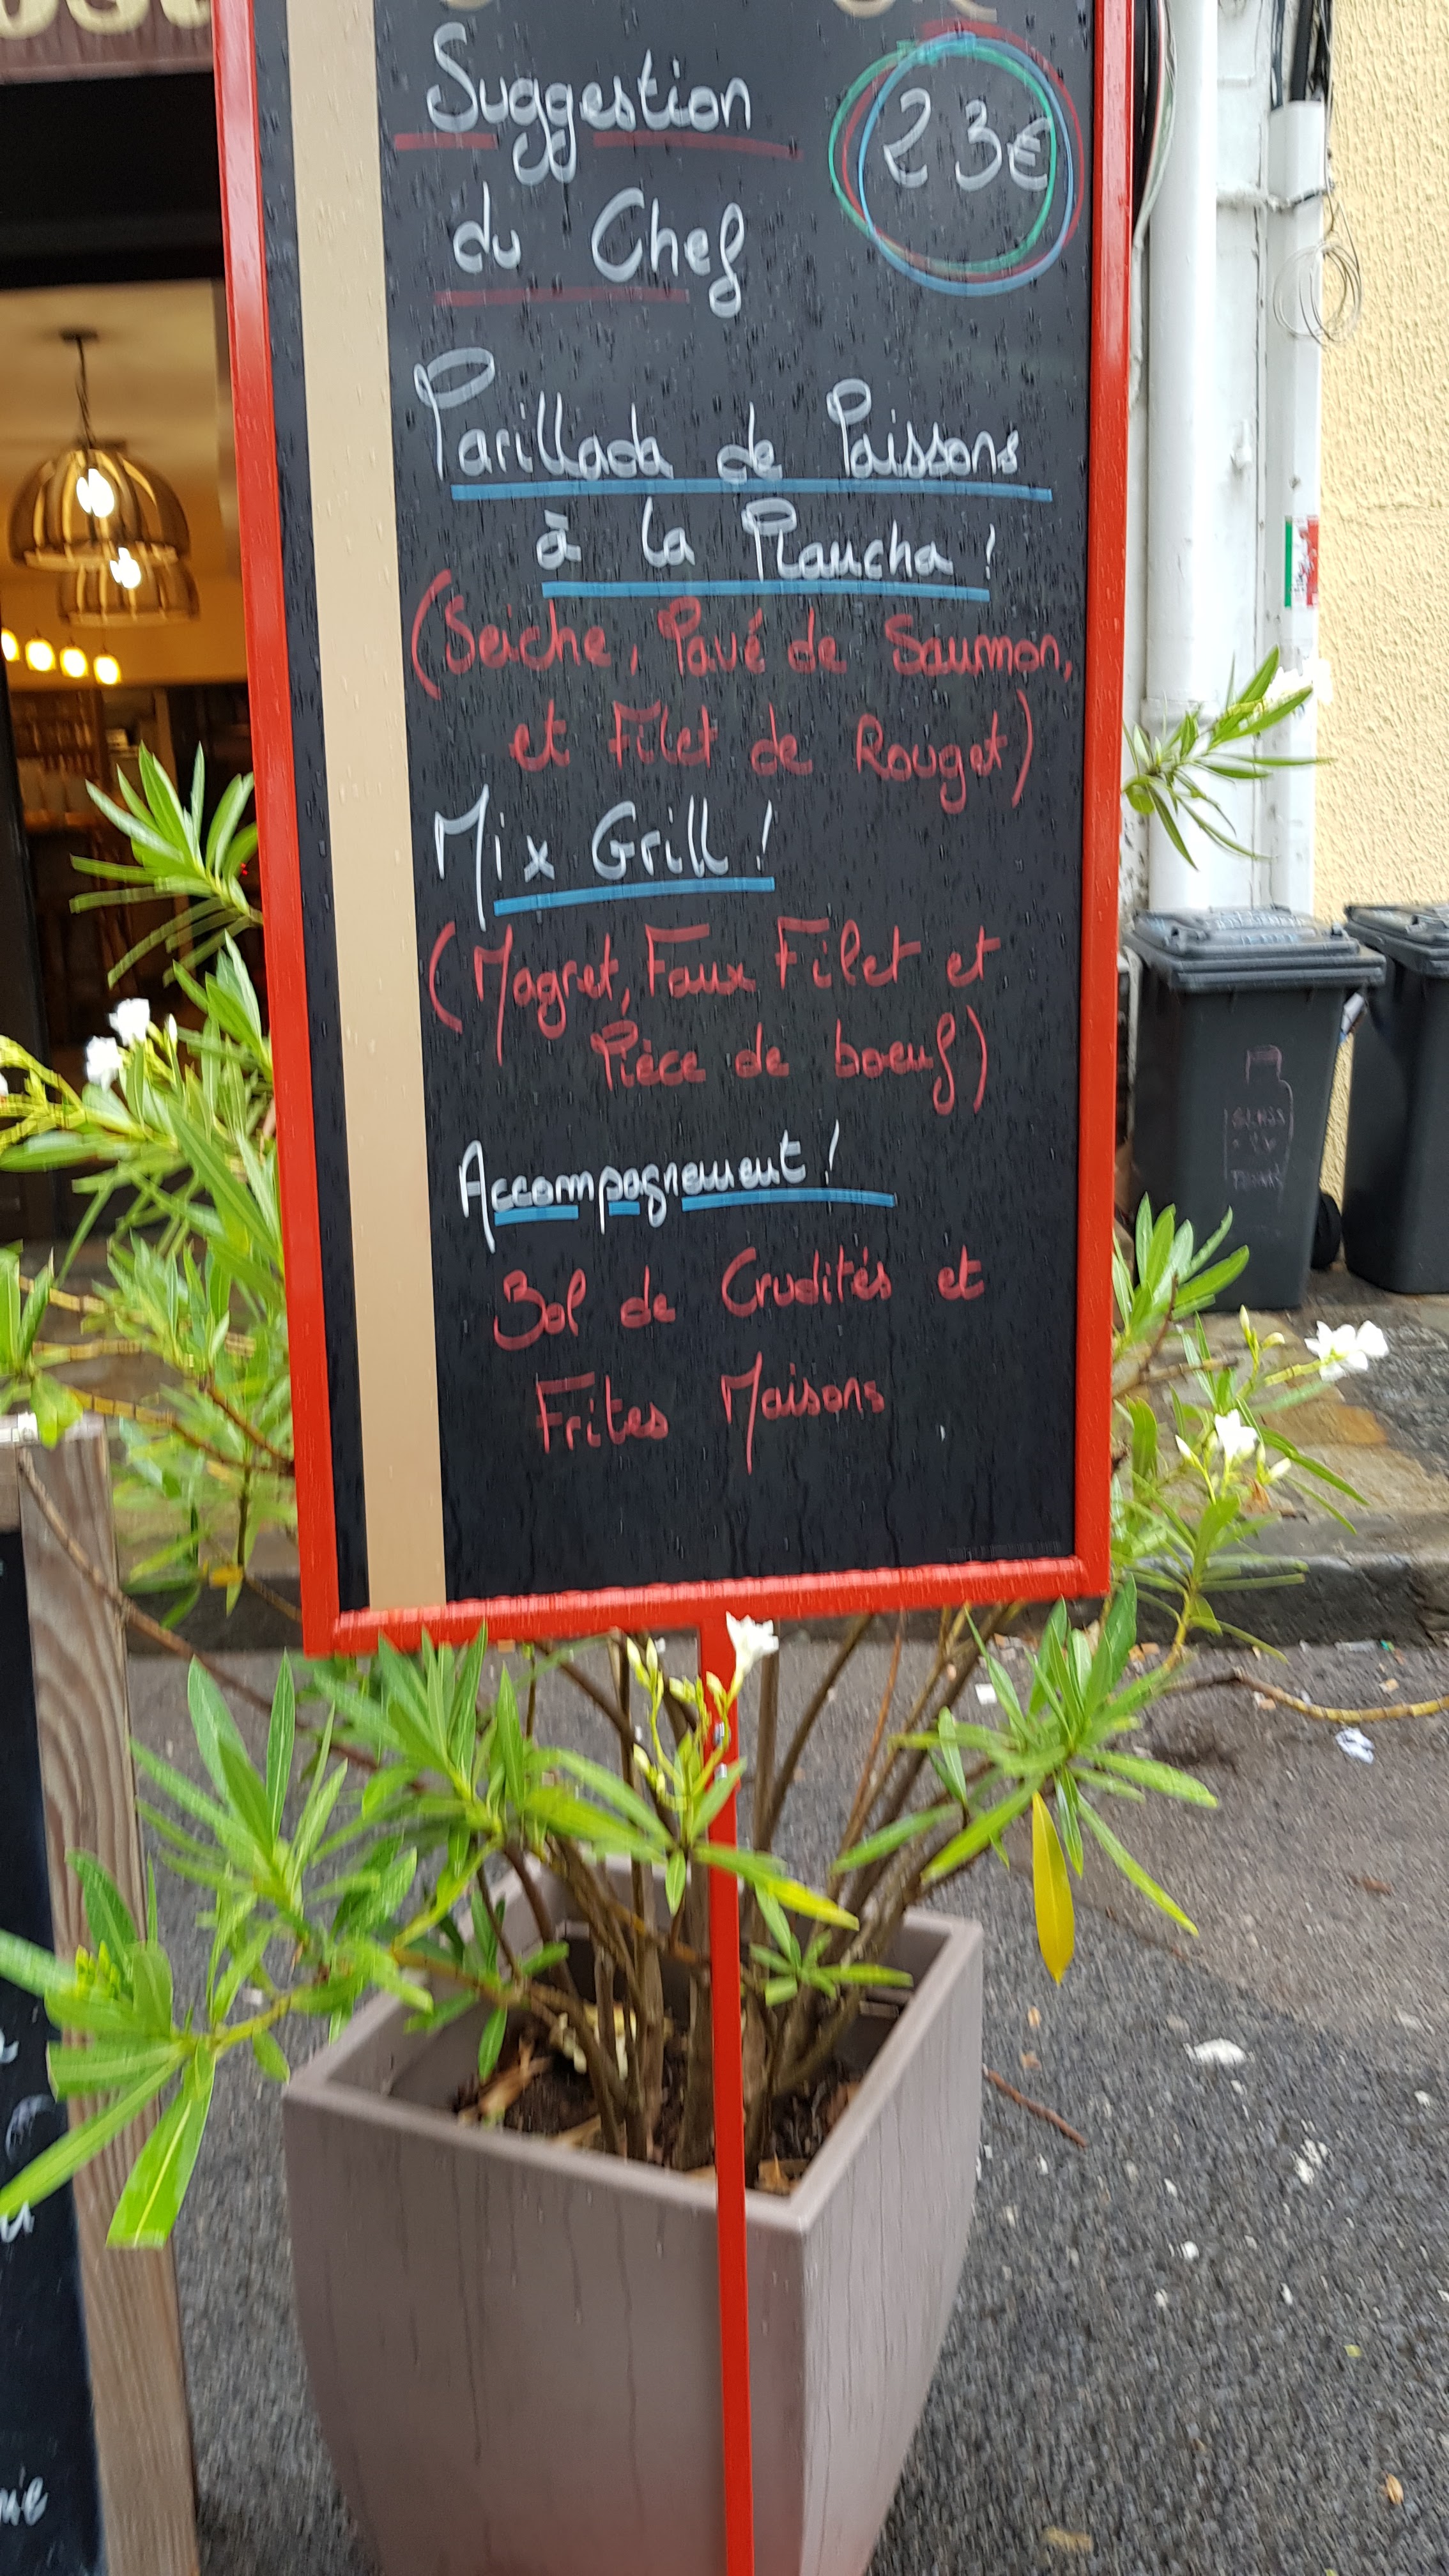 Suggestion
23€
du Chef
Parillada de Poissons
à la Plancha !
(Seiche, Pavé de Saumon,
et Filet de Rouget)
Mix Grill !
(Magret, Faux Filet et
Pièce de boeuf)
Accompagnement !
Bol de Crudités et
Frites Maisons